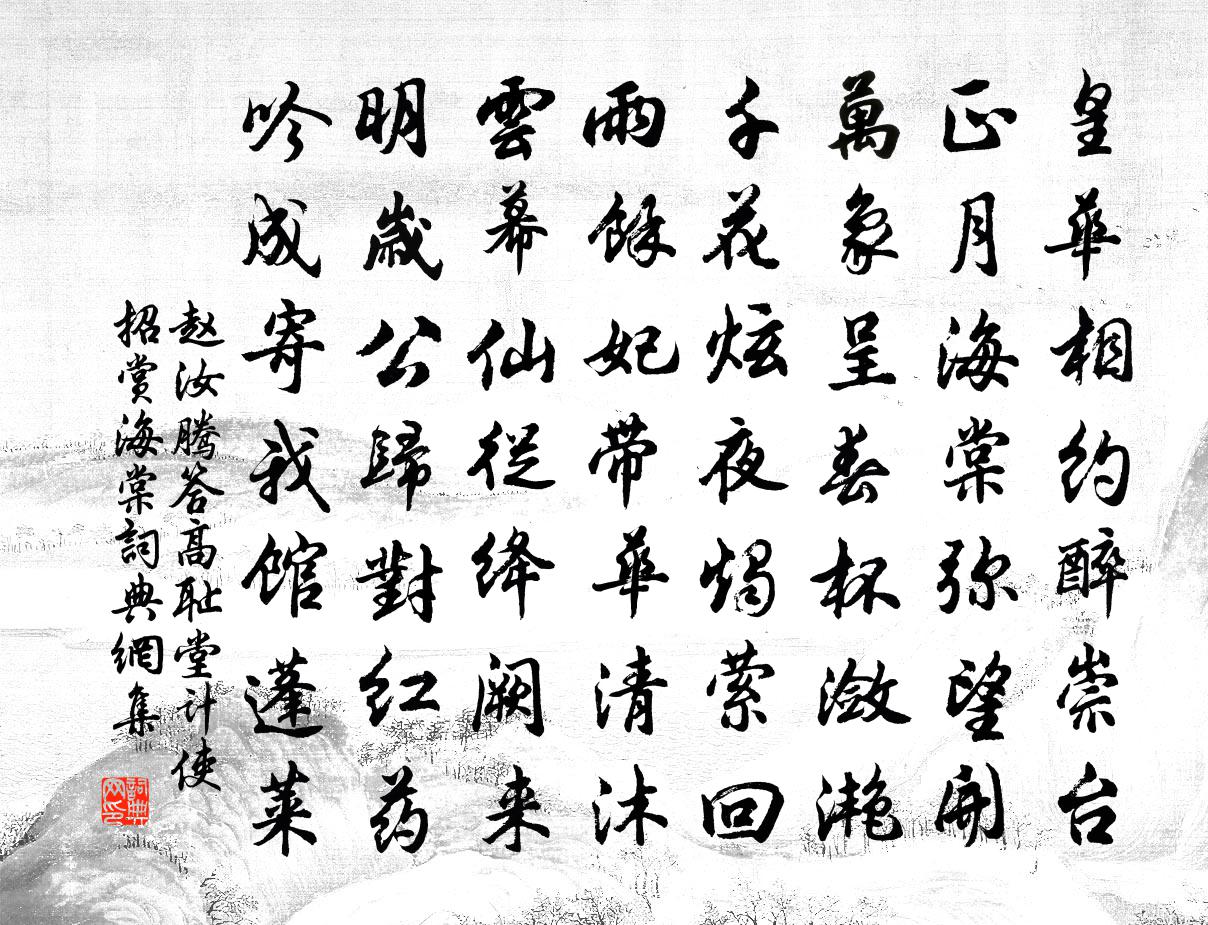 皇華相約醉崇台
正月海棠弥望開
萬象呈春杯瀲灧
千花炫夜燭縈回
雨餘妃帶華清沐
雲幕仙從絳闕来
明歲公歸對红药
吟成寄我館蓬莱
赵汝腾答高耻堂计使
招赏海棠詞典網集
詞典
网印